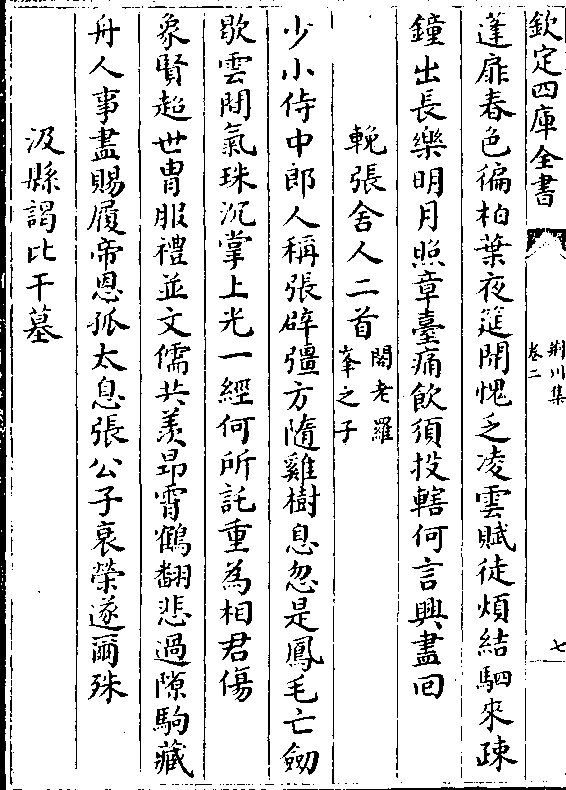 欽定四庫全書
荆川集
卷二
七
蓬扉春色徧柏葉夜筵開愧乏凌雲賦徒煩結駟來疎
鐘出長樂明月照章臺痛飲須投轄何言興盡回
輓張舍人二首
閣老羅
峯之子
少小侍中郎人稱張辟彊方隨雞樹息忽是鳳毛亡劒
歇雲間氣珠沉掌上光一經何所託重為相君傷
象賢超世冑服禮並文儒共羡昂霄鶴翻悲過隙駒藏
舟人事盡賜履帝恩孤太息張公子哀榮遂爾殊
汲縣謁比干墓